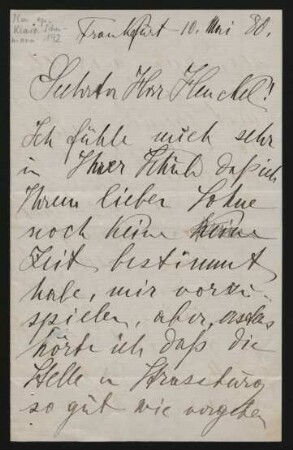 Frankfurt 10. Mai 80.
Geehrter Herr Henckel!
Ich fühle mich sehr
in Ihrer Schuld daß ich
Ihrem lieben Sohne
noch keine keine
Zeit bestimmt
habe, mir vorzu-
spielen, aber,
hörte ich daß die
Stelle in Strassburg
so gut wie vergeben